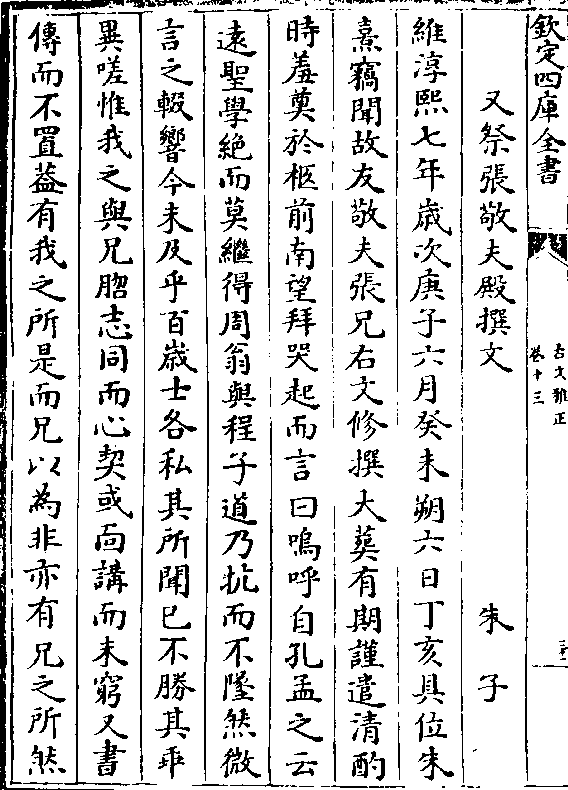 欽定四庫全書
古文雅正
卷十三
又祭張敬夫殿撰文
朱子
維淳熙七年歲次庚子六月癸未朔六日丁亥具位朱
熹竊聞故友敬夫張兄右文修撰大葬有期謹遣清酌
時羞奠於柩前南望拜哭起而言曰嗚呼自孔孟之云
遠聖學絶而莫繼得周翁與程子道乃抗而不墜然微
言之輟響今未及乎百歲士各私其所聞已不勝其乖
異嗟惟我之與兄脗志同而心契或面講而未窮又書
傳而不置蓋有我之所是而兄以為非亦有兄之所然